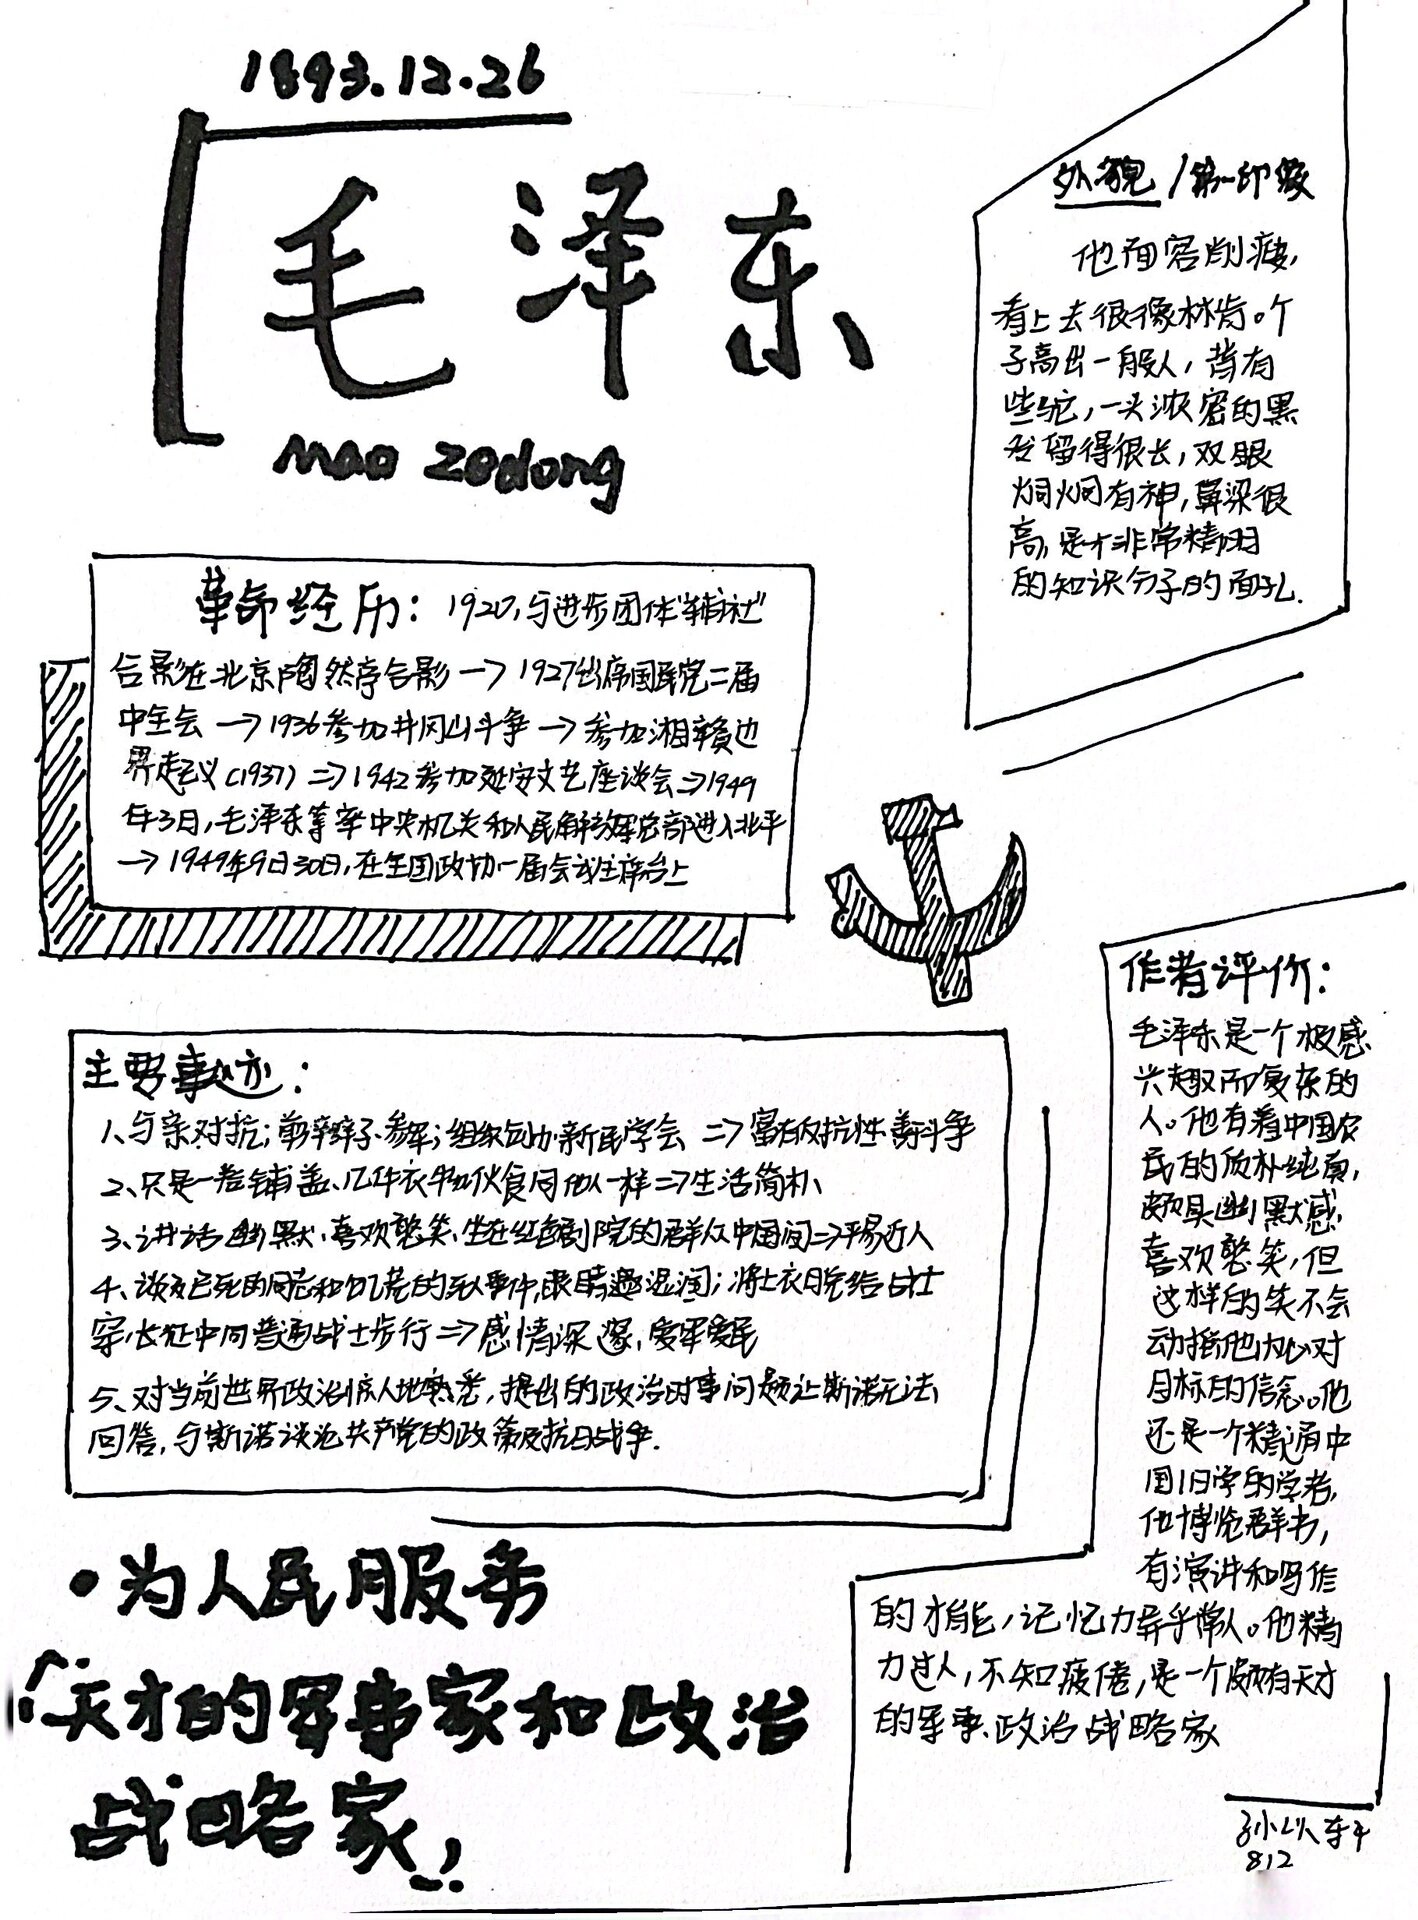 1893.12.26
毛泽东
mao zedong
外貌/第一印象
他面容削瘦,
看上去很像林肯。个
子高出一般人,背有
些驼,一头浓密的黑
发留得很长,双眼
炯炯有神,鼻梁很
高,是个非常精明
的知识分子的面孔.
革命经历:1920,与进步团体"辅社"
合影在北京陶然亭合影→1927出席国民党二届
中全会→1936参加井冈山斗争→参加湘赣边
界起义(1937)⇒1942参加延安文艺座谈会⇒1949
年3日,毛泽东等率中央机关和人民解放军总部进入北平
→1949年9日30日,在全国政协一届会议主席台上
主要事迹:
1、与亲对抗;剪辫子、参军;组织创办新民学会⇒富有反抗性、善斗争
2、只是一卷铺盖、几件衣物伙食同他人一样⇒生活简朴、
3、讲话幽默、喜欢憨笑、坐在红色剧院的群众中国间⇒平易近人
4、谈及已死的同志和饥荒的死人事件,眼睛湿润;将上衣脱给战士
穿,长征中同普通战士步行⇒感情深邃,爱军爱民
5、对当前世界政治惊人地熟悉,提出的政治时事问题让斯诺无法
回答,与斯诺谈论共产党的政策及抗日战争.
作者评价:
毛泽东是一个极感
兴趣而复杂的
人。他有着中国农
民的质朴纯真,
颇具幽默感,
喜欢憨笑,但
这样的笑不会
动摇他内心对
目标的信念。他
还是一个精通中
国旧学的学者,
他博览群书,
有演讲和写作
的才能,记忆力异乎常人。他精
力过人,不知疲倦,是一个颇有天才
的军事、政治战略家
•为人民服务
「天才的军事家和政治
战略家」!
孙以轩
812